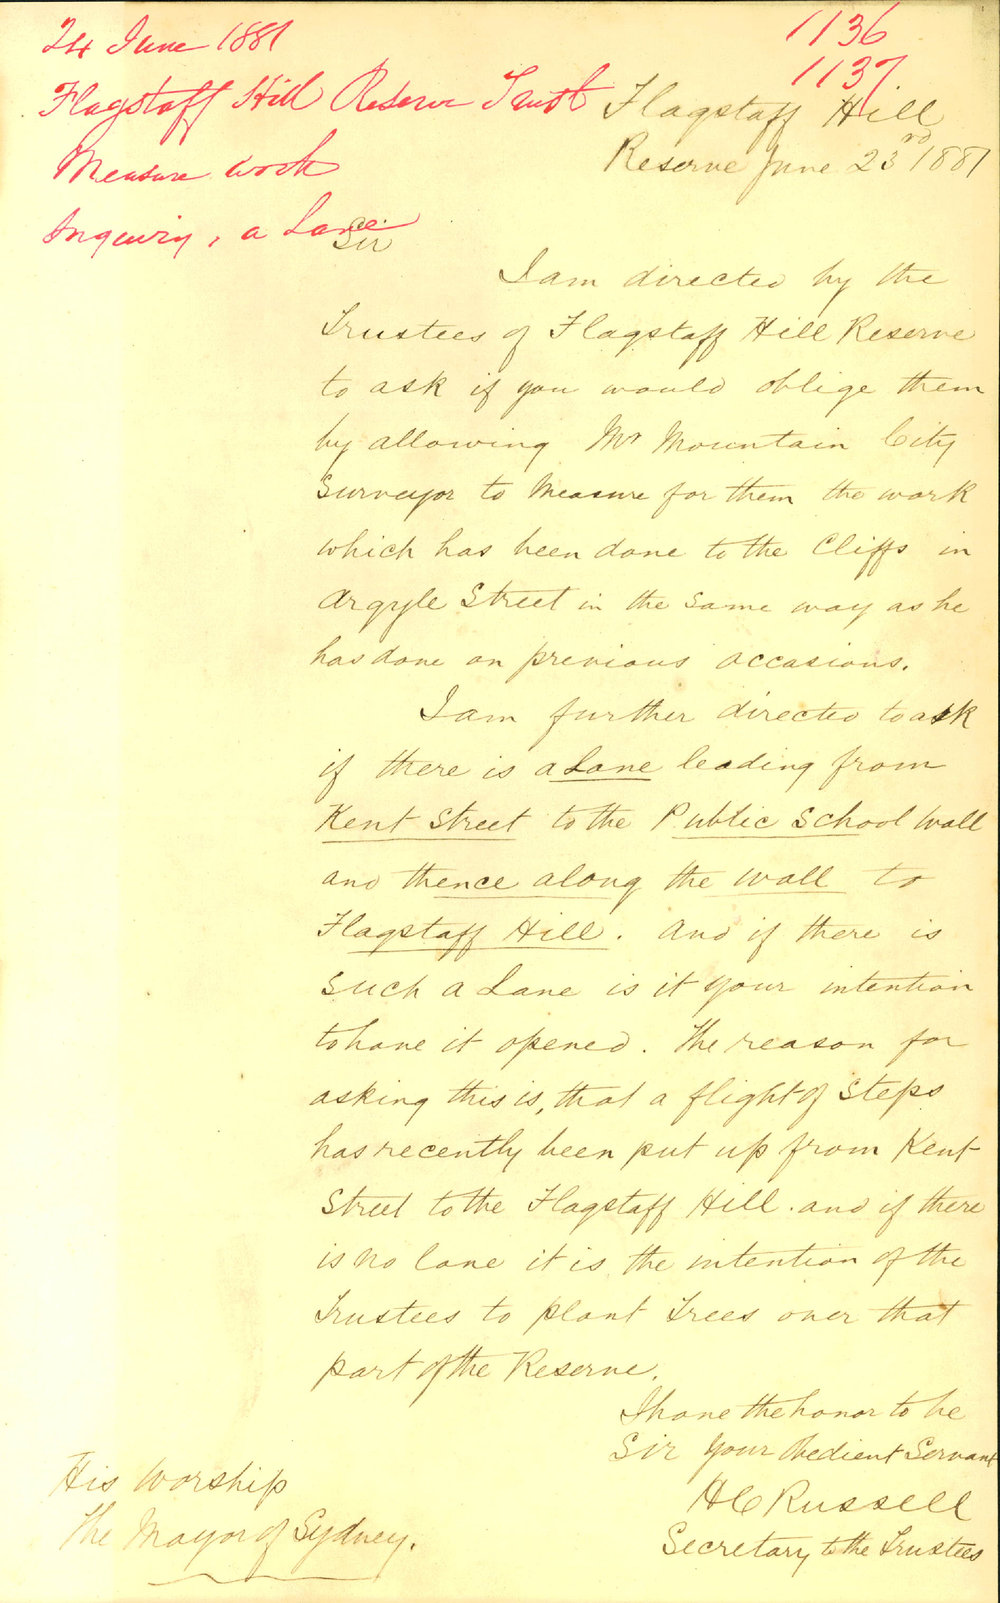 24 June 1881
1136
1137
Flagstaff Hill Reserve Trust
Measure work
Inquiry, a Lane
Flagstaff Hill
Reserve June 23rd 1881
Sir
I am directed by the
Trustees of Flagstaff Hill Reserve
to ask if you would oblige them
by allowing Mr Mountain City
Surveyor to Measure for them the work
which has been done to the Cliffs in
Argyle Street in the same way as he
has done on previous occasions.
I am further directed to ask
if there is a Lane leading from
Kent Street to the Public School Wall
and thence along the wall to
Flagstaff Hill. And if there is
such a Lane is it your intention
to have it opened. The reason for
asking this is, that a flight of Steps
has recently been put up from Kent
Street to the Flagstaff Hill. and if there
is no lane it is the intention of the
Trustees to plant Trees over that
part of the Reserve.
I have the honor to be
Sir Your Obedient Servant
H C Russell
Secretary to the Trustees
His Worship
The Mayor of Sydney.